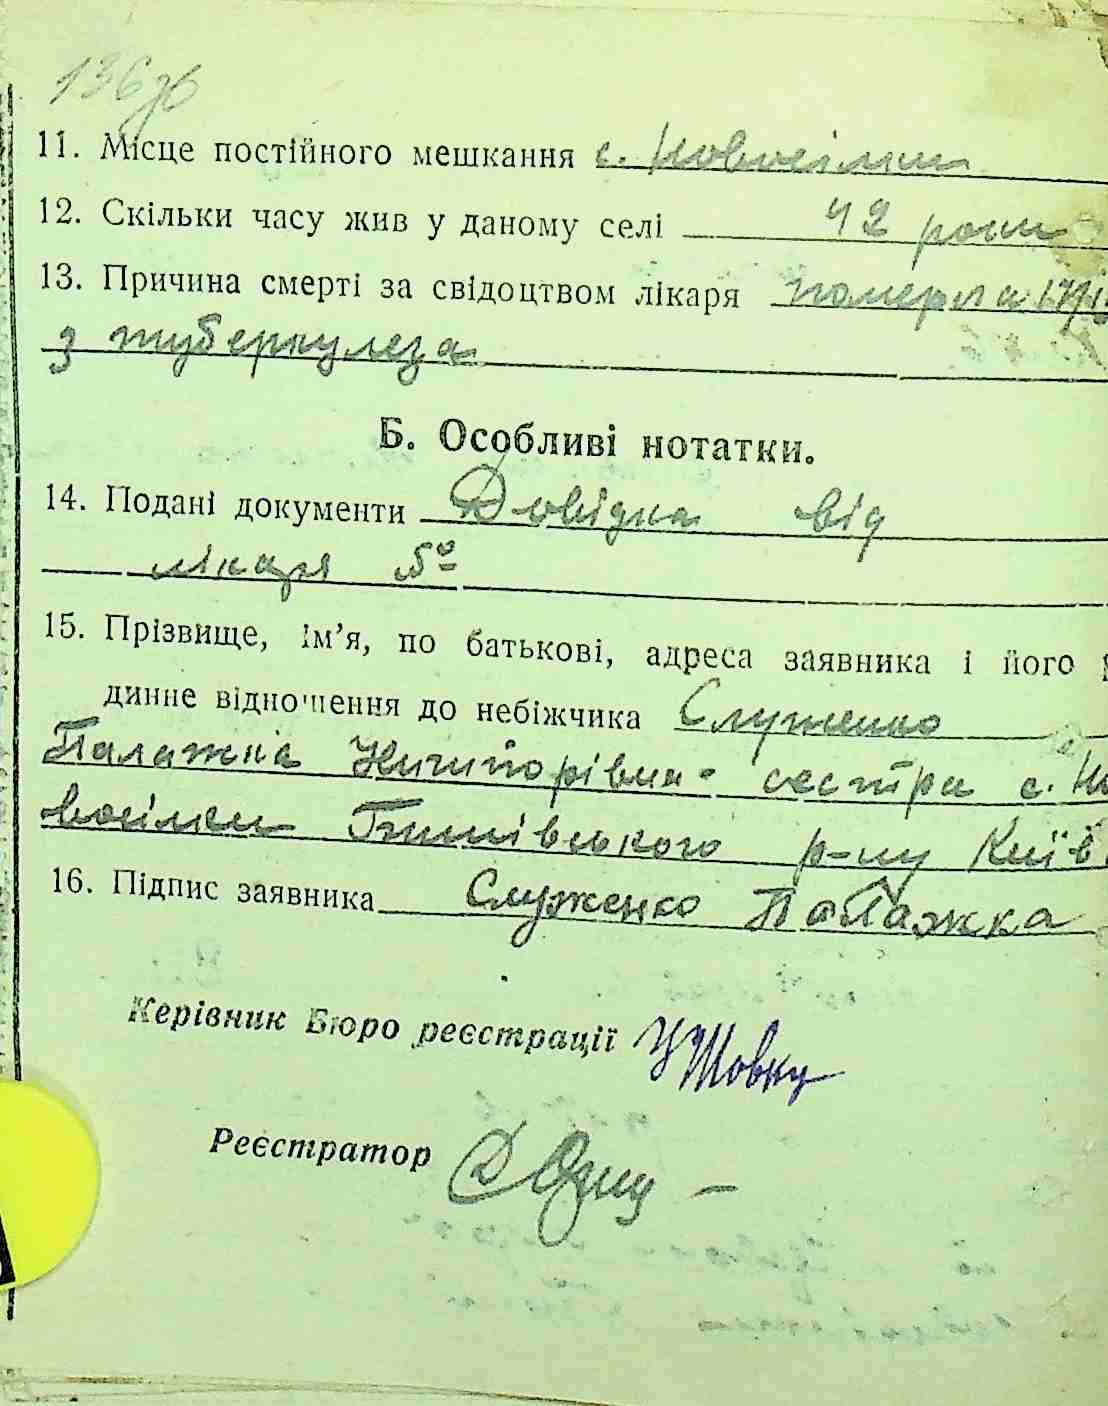 136зв
11. Місце постійного мешкання с.
12. Скільки часу жив у даному селі 42 роки
13. Причина смерті за свідоцтвом лікаря померла
з туберкулеза
Б. Особливі нотатки.
14. Подані документи Довідка від
лікаря
15. Прізвище, ім'я, по батькові, адреса заявника і його
динне відношення до небіжчика Служенко
Палажка Ничипорівна - сестра с.
р-ну Київ
16. Підпис заявника Служенко Палажка
Керівник Бюро реєстрації
Реєстратор